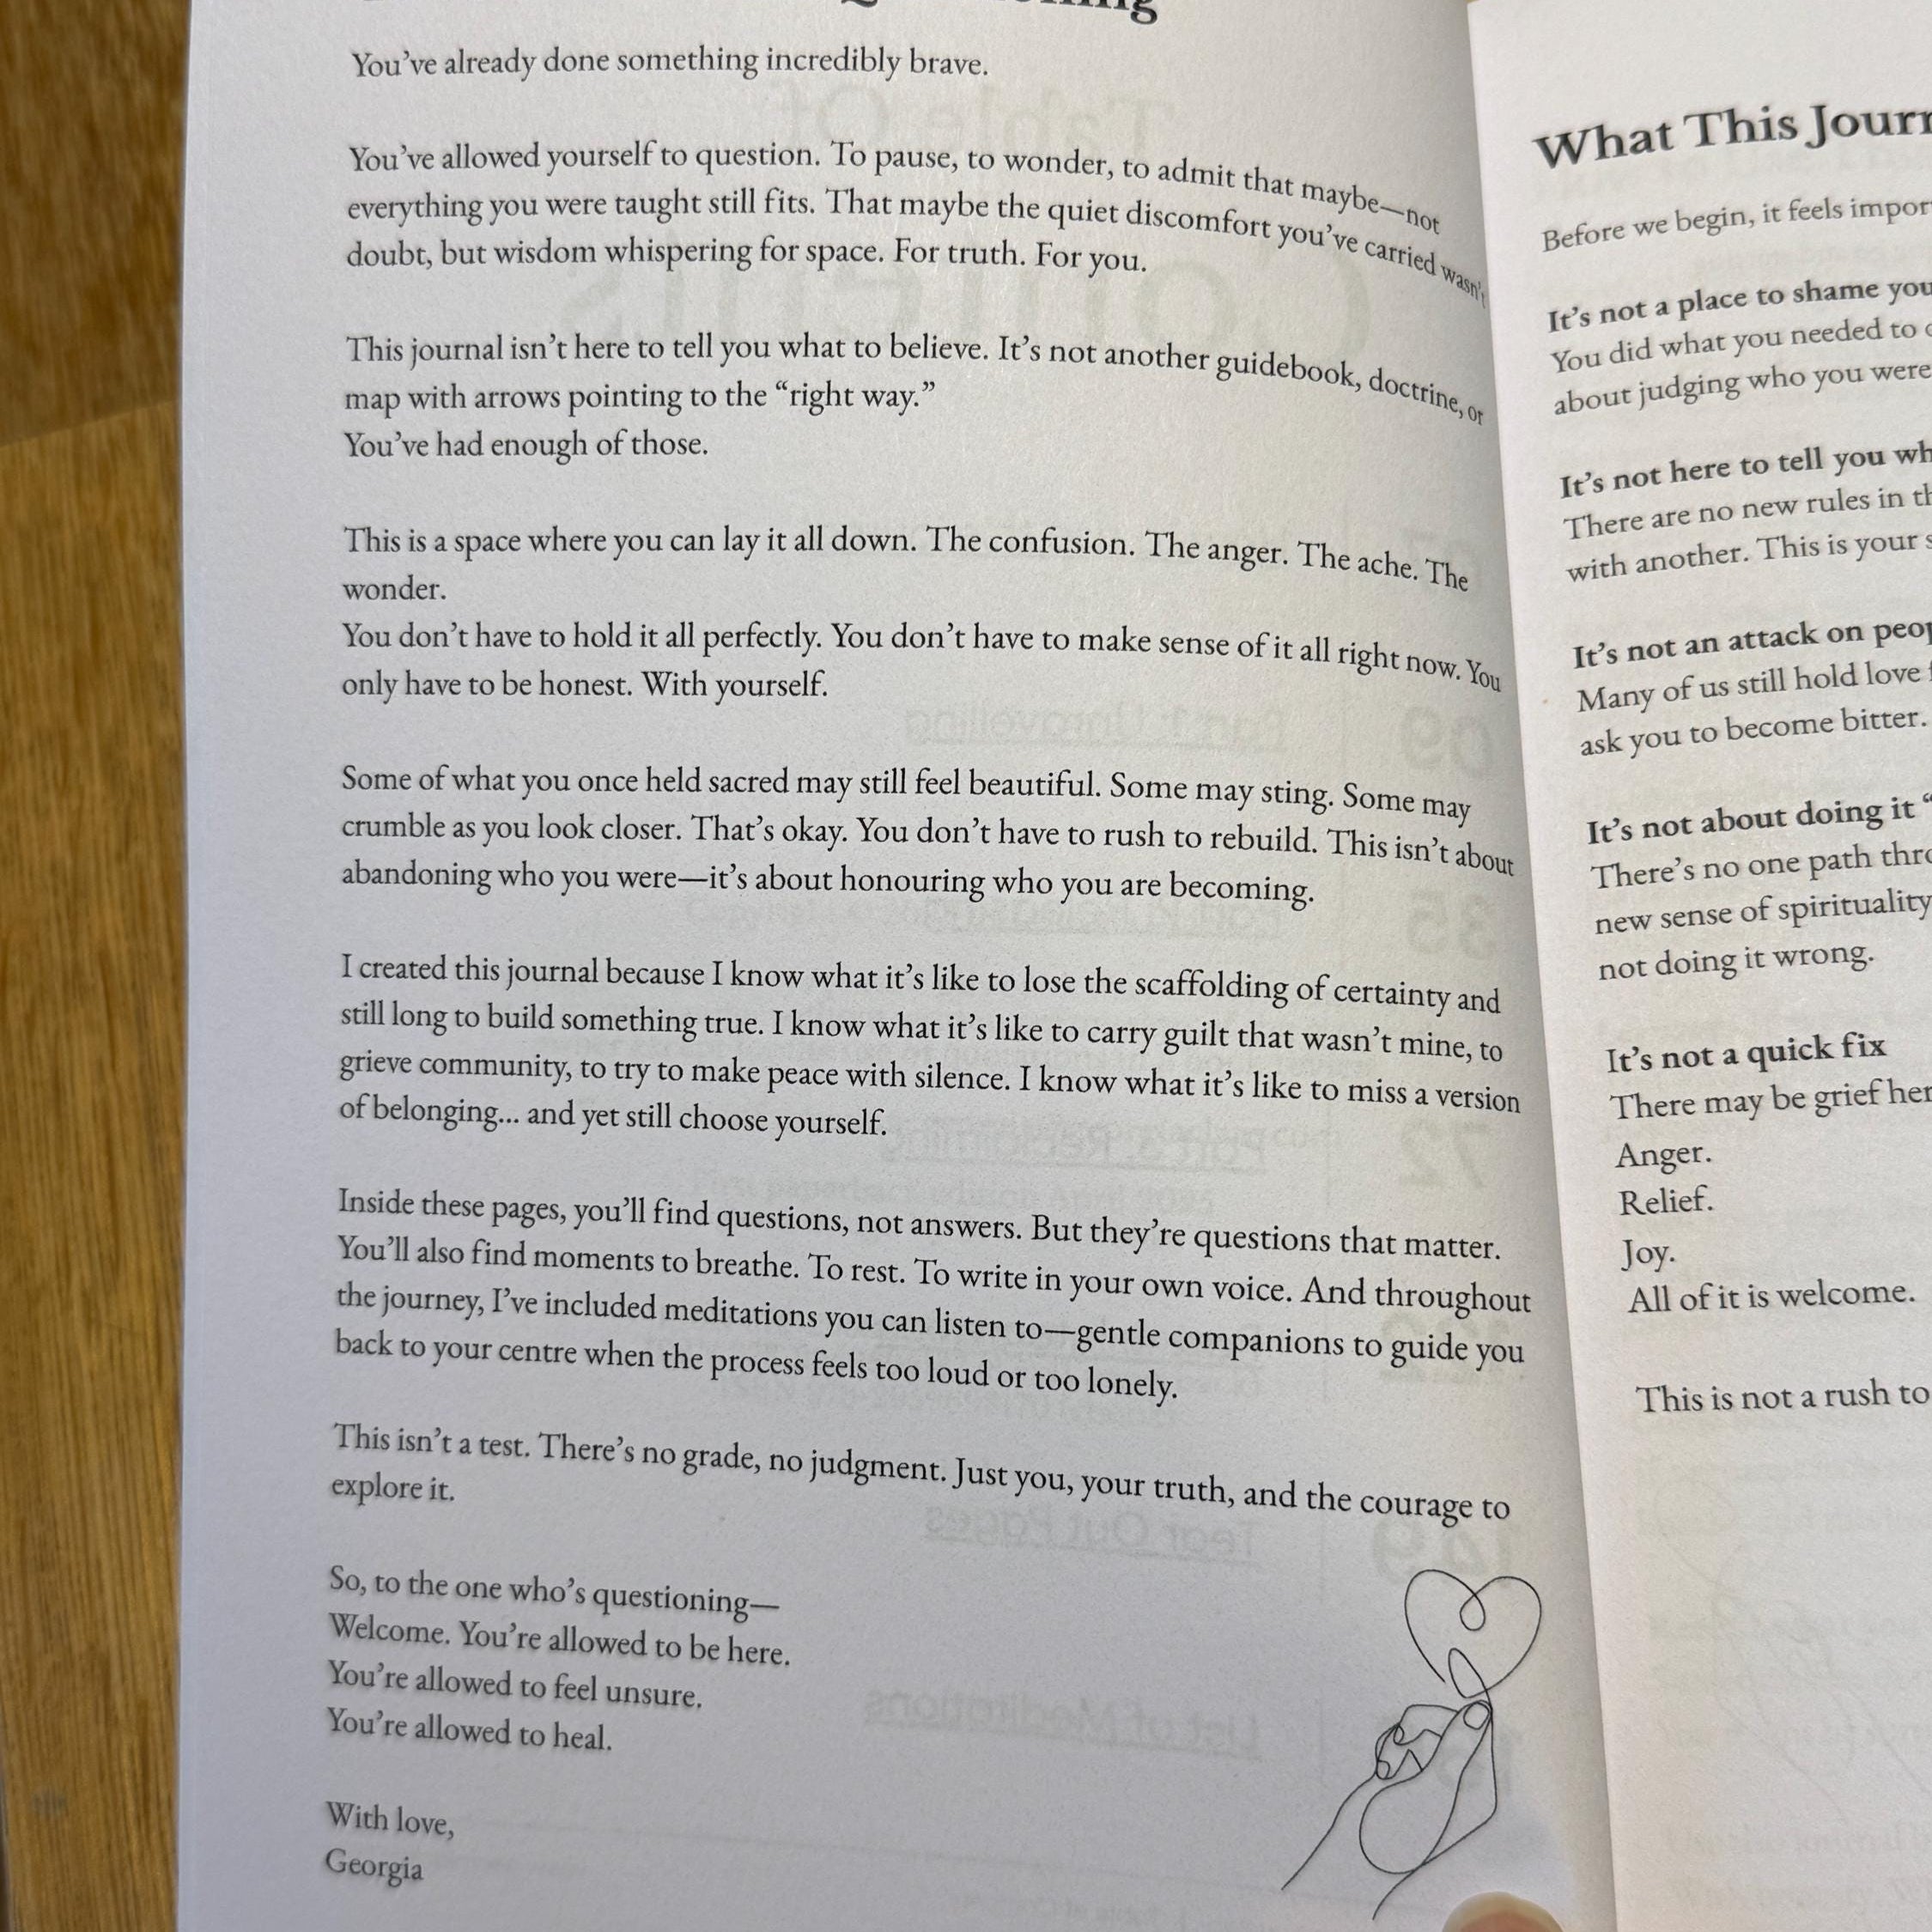 You've already done something incredibly brave.
You've allowed yourself to question. To pause, to wonder, to admit that maybe—not
everything you were taught still fits. That maybe the quiet discomfort you've carried wasn't
doubt, but wisdom whispering for space. For truth. For you.
This journal isn't here to tell you what to believe. It's not another guidebook, doctrine, or
map with arrows pointing to the “right way.”
You've had enough of those.
This is a space where you can lay it all down. The confusion. The anger. The ache. The
wonder.
You don't have to hold it all perfectly. You don't have to make sense of it all right now. You
only have to be honest. With yourself.
Some of what you once held sacred may still feel beautiful. Some may sting. Some may
crumble as you look closer. That's okay. You don't have to rush to rebuild. This isn't about
abandoning who you were—it's about honouring who you are becoming.
I created this journal because I know what it's like to lose the scaffolding of certainty and
still long to build something true. I know what it's like to carry guilt that wasn't mine, to
grieve community, to try to make peace with silence. I know what it's like to miss a version
of belonging... and yet still choose yourself.
Inside these pages, you'll find questions, not answers. But they're questions that matter.
You'll also find moments to breathe. To rest. To write in your own voice. And throughout
the journey, I've included meditations you can listen to—gentle companions to guide you
back to your centre when the process feels too loud or too lonely.
This isn't a test. There's no grade, no judgment. Just you, your truth, and the courage to
explore it.
So, to the one who's questioning—
Welcome. You're allowed to be here.
You're allowed to feel unsure.
You're allowed to heal.
With love,
Georgia
What This
Before we begin, it feels
It's not a place to shame
You did what you needed to
about judging who you were
It's not here to tell you
There are no new rules in
with another. This is your
It's not an attack on
Many of us still hold love
ask you to become bitter.
It's not about doing it
There's no one path
new sense of spirituality
not doing it wrong.
It's not a quick fix
There may be grief
Anger.
Relief.
Joy.
All of it is welcome.
This is not a rush to